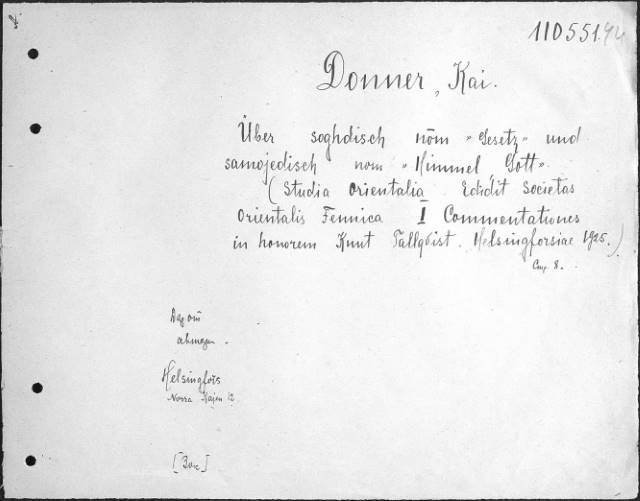 110551.42
Donner, Kai.
Über soghdisch nōm "Gesetz" und
samojedisch nom "Himmel, Gott".
(Studia Orientalia. Edidit Societas
Orientalis Fennica I Commentationes
in honorem Knut Tallqvist. Helsingforsiae 1925.)
Стр. 8.
Helsingfors
Norra Kajen 12